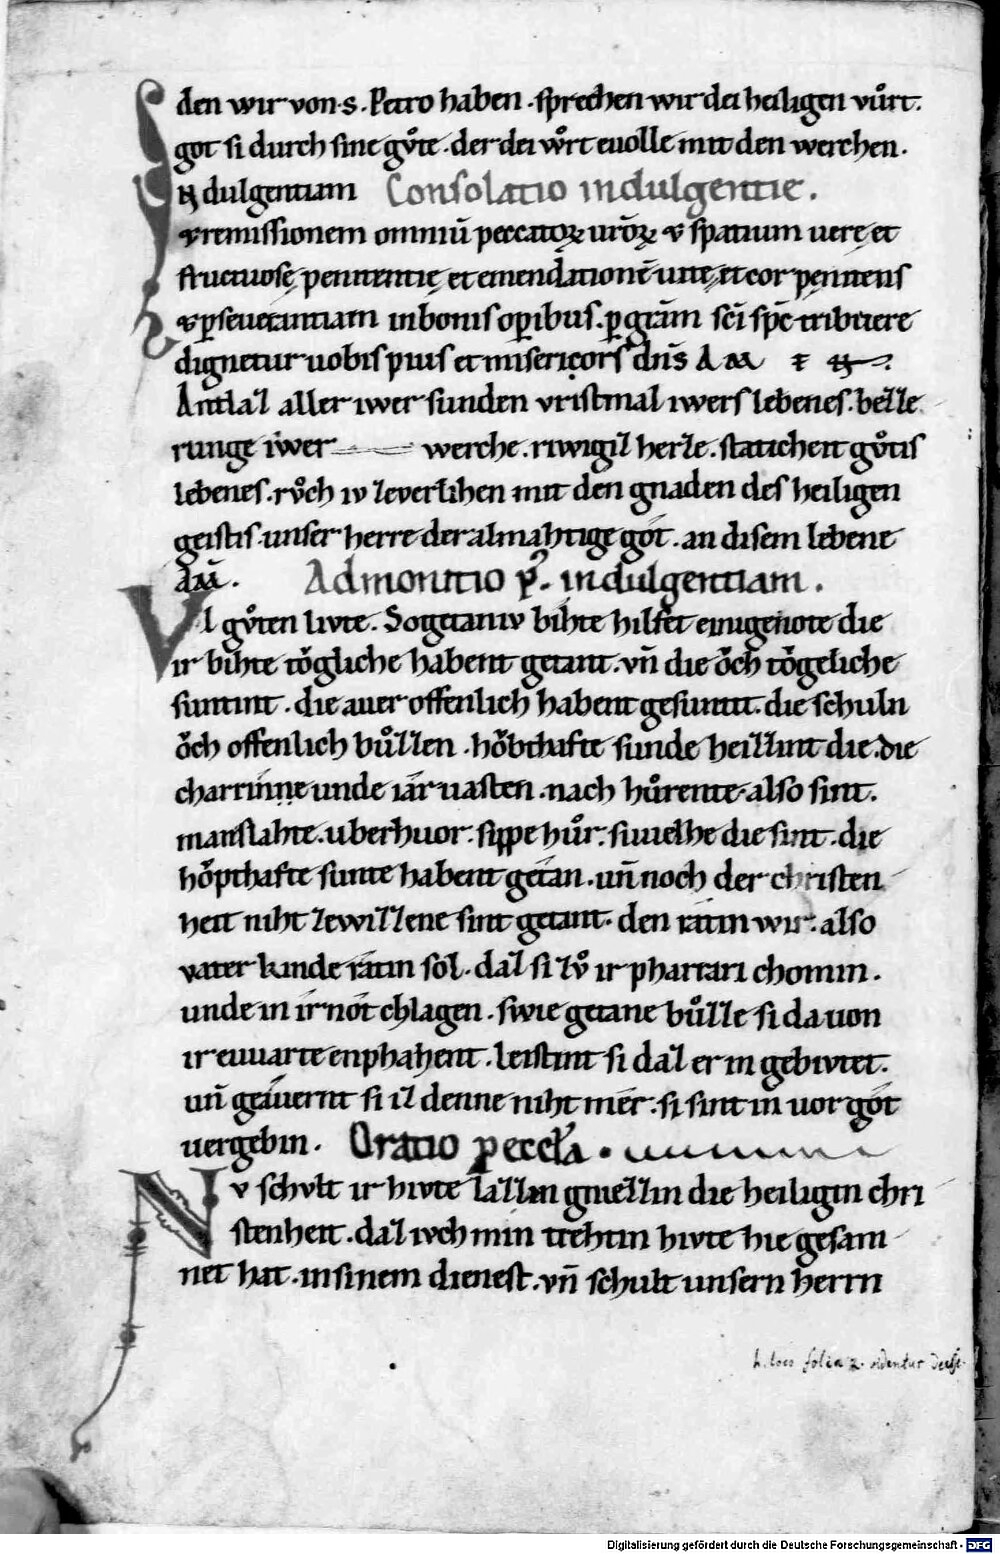 den wir von·s·Petro haben·sprechen wir dei heiligen vůrt.
got si durch sine gv̊te·der dei wo̊rt euolle mit den werchen·
Indulgentiam Consolatio indulgentie.
⁊ remissionem omniū peccatoꝝ urōꝝ ⁊ spatium uerę et
fructuosę penitentię et emendationē uitę, et cor penitens
⁊ ꝑseuerantiam in bonis oꝑibus·ꝑ grām sc̄i sp̄c tribuere
dignetur uobis pius et misericors dn̄s A
Antlaz aller iwer sunden vristmal iwers lebenes·bezze
runge iwer werche·riwigiz herze·staticheit gůtis
lebenes·rv̊ch iv zeverlihen mit den gnaden des heiligen
geistis·unser herre der almahtige got·an disem lebene
Am̄. Admonitio ꝑ. indulgentiam.
Vil gv̊ten livte. Sogetaniv bihte hilfet einigenote die
ir bihte tŏgliche habent getant·vn̄ die ŏch tŏgeliche
suntint·die auer offenlich habent gesuntit·die schuln
ŏch offenlich bv̊zzen·hŏbthafte sunde heizzint die·die
charrinne unde iar uasten·nach hůrente·also sint.
manslahte·uberhuor·sippe hůr·suuelhe die sint·die
hŏpthafte sunte habent getan·un̄ noch der christen
heit niht zewizzene sint getant·den ratin wir·also
vater kinde ratin sol·daz si zv̊ ir pharrari chomin·
unde in ir not chlagen·swie getane bůzze si da uon
ir euuarte enphahent·leistint si daz er in gebivtet·
un̄ geauernt si iz denne niht mer·si sint in vor got
uergebin. Oratio
Nv schvlt ir hivte lazzin gniezzin die heiligin chri
stenheit·daz ivch min trehtin hivte hie gesam
net hat·in sinem dienest·vn̄ schult unsern herrn
h. loco folia 2. videntur
Digitalisierung gefördert durch die Deutsche Forschungsgemeinschaft - DFG